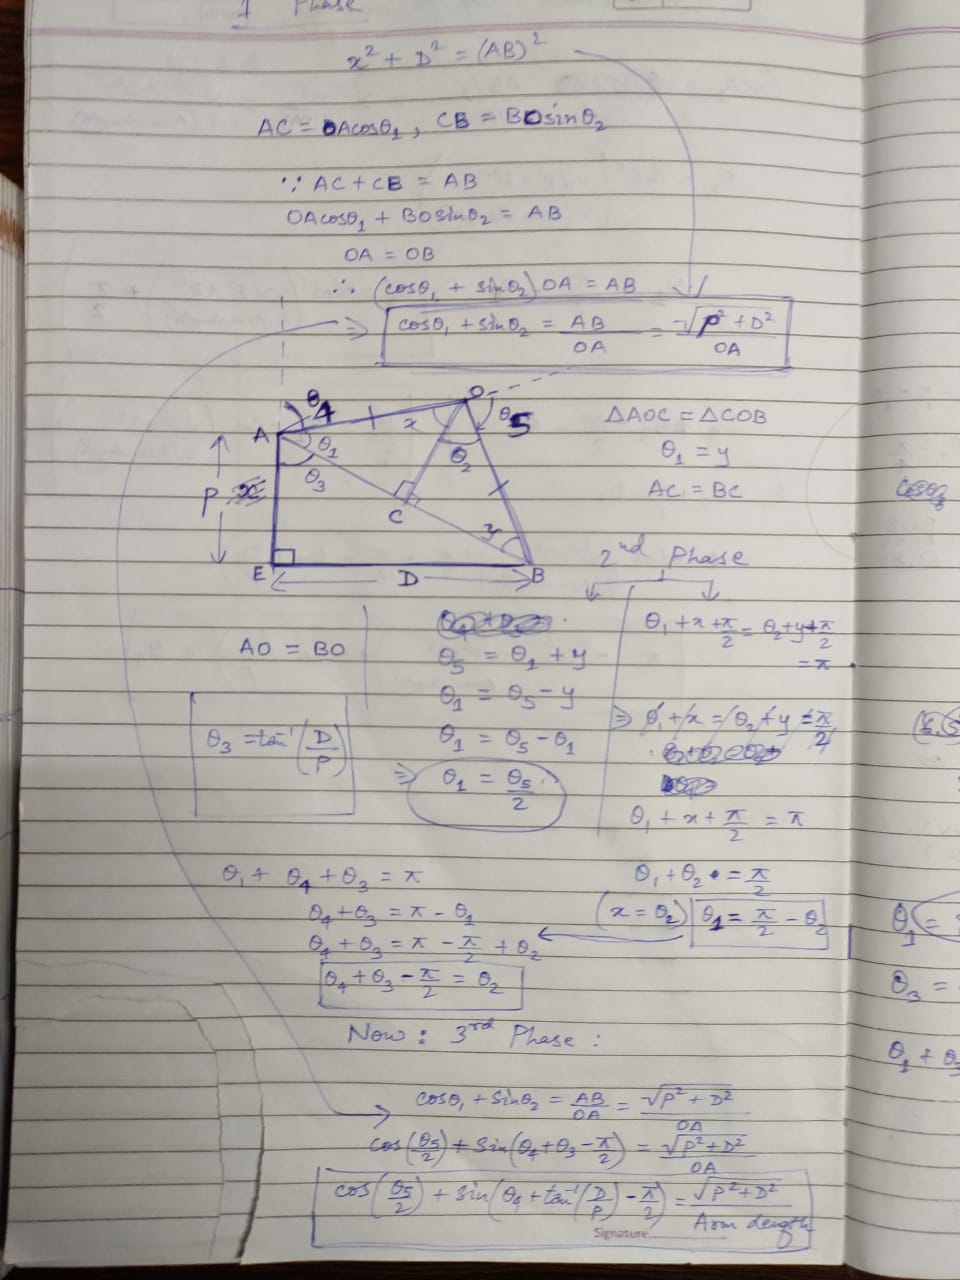 1 Phase
x² + D² = (AB)²
AC = OAcosθ₁, CB = BOsinθ₂
∵ AC + CB = AB
OAcosθ₁ + BOsinθ₂ = AB
OA = OB
∴ (cosθ₁ + sinθ₂) OA = AB
⇒ cosθ₁ + sinθ₂ = AB/OA = √(P² + D²)/OA
θ₄
O
θ₅
A
θ₁
x
θ₂
θ₃
P
C
y
E
D
B
ΔAOC = ΔCOB
θ₁ = y
AC = BC
2nd Phase
AO = BO
θ₃ = tan⁻¹(D/P)
θ₅ = θ₁ + y
θ₁ = θ₅ - y
θ₁ = θ₅ - θ₁
⇒ θ₁ = θ₅/2
θ₁ + x + π/2 = θ₂ + y + π/2
= π
⇒ θ₁ + x = θ₂ + y = π/2
θ₁ + x + π/2 = π
θ₁ + θ₂ = π/2
(x = θ₂) θ₁ = π/2 - θ₂
θ₁ + θ₄ + θ₃ = π
θ₄ + θ₃ = π - θ₁
θ₄ + θ₃ = π - π/2 + θ₂
θ₄ + θ₃ - π/2 = θ₂
Now: 3rd Phase:
cosθ₁ + sinθ₂ = AB/OA = √(P² + D²)/OA
cos(θ₅/2) + sin(θ₄ + θ₃ - π/2) = √(P² + D²)/OA
cos(θ₅/2) + sin(θ₄ + tan⁻¹(D/P) - π/2) = √(P² + D²)/Arm Length
Signature
θ₁ =
θ₃ =
θ₁ + θ₃